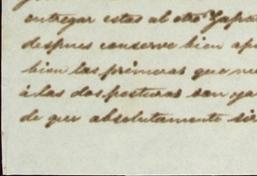 entregar estas al otro Zapa
despues conserve bien ap
bien las primeras que me
á las dos posturas son ya
de que absolutamente si